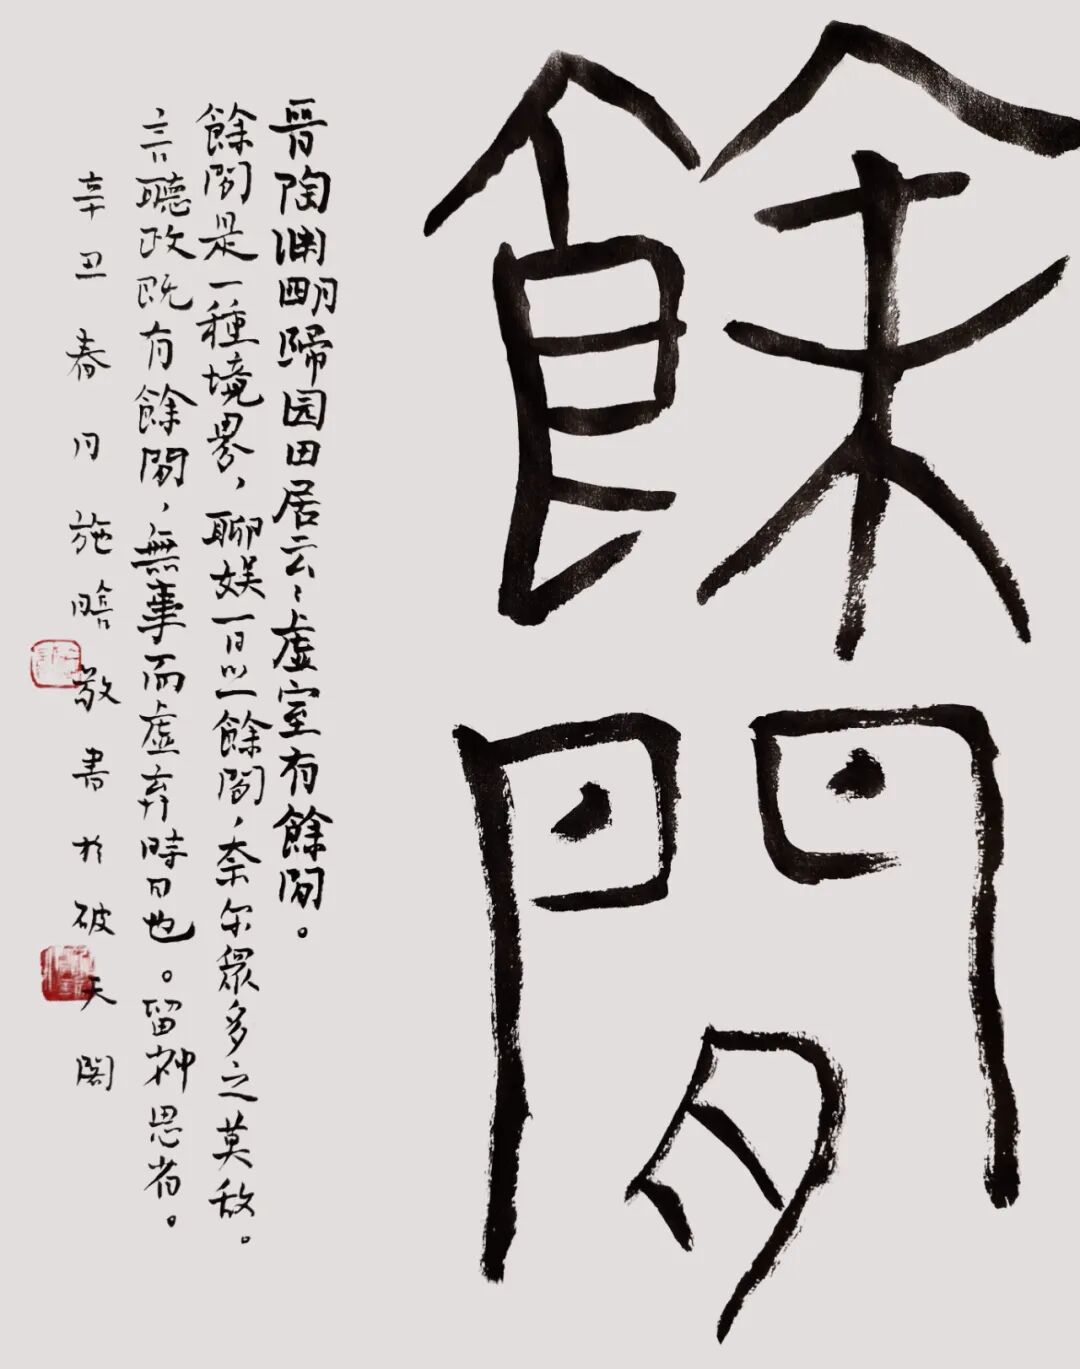 餘閒
晉陶渊明歸园田居云、虚室有餘閒。
餘閒是一種境界，聊娱一日之餘閒，奈尔眾多之莫敌。
言聽政既有餘閒，無事而虚弃時日也。留神思省。
辛丑春月施晗敬書於破天阁